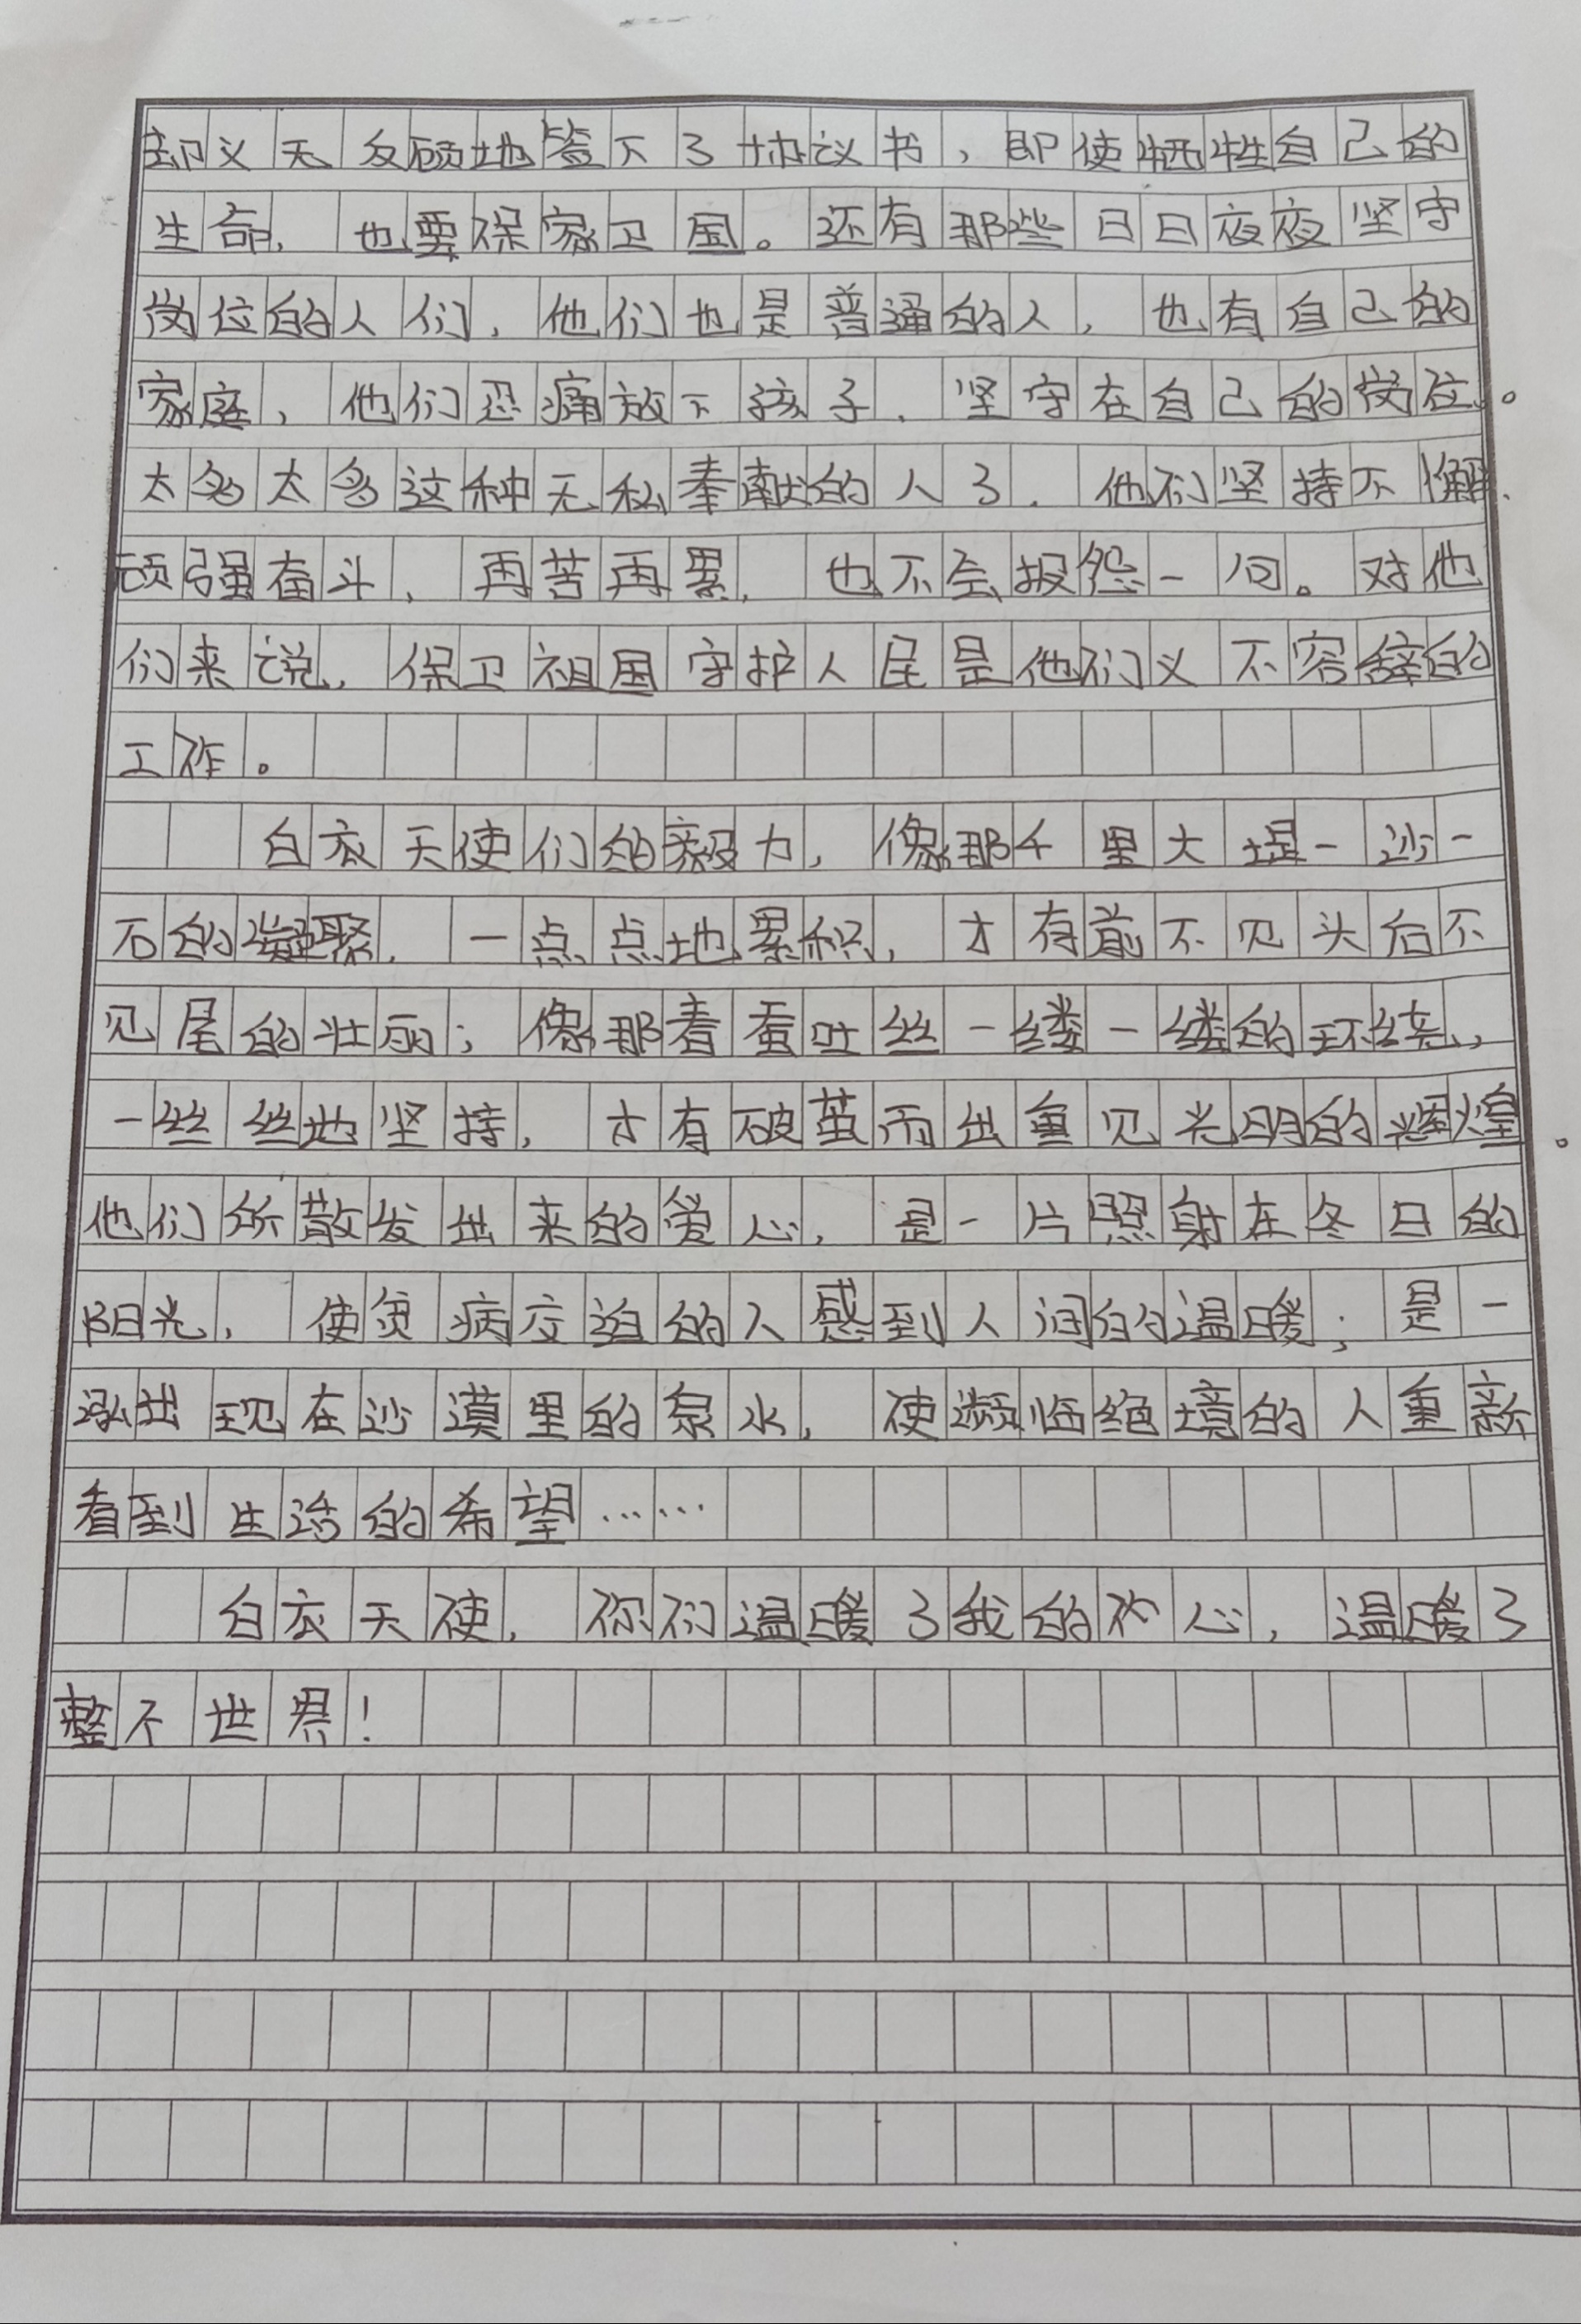 却义无反顾地签下了协议书，即使牺牲自己的
生命，也要保家卫国。还有那些日日夜夜坚守
岗位的人们，他们也是普通的人，也有自己的
家庭，他们忍痛放下孩子，坚守在自己的岗位。
太多太多这种无私奉献的人了，他们坚持不懈、
顽强奋斗，再苦再累，也不会报怨一句。对他
们来说，保卫祖国守护人民是他们义不容辞的
工作。
白衣天使们的毅力，像那千里大堤一沙一
石的凝聚，一点点地累积，才有前不见头后不
见尾的壮丽；像那春蚕吐丝一缕一缕的环绕，
一丝丝地坚持，才有破茧而出重见光明的辉煌。
他们所散发出来的爱心，是一片照射在冬日的
阳光，使贫病交迫的人感到人间的温暖；是一
泓出现在沙漠里的泉水，使濒临绝境的人重新
看到生活的希望……
白衣天使，你们温暖了我的内心，温暖了
整个世界！